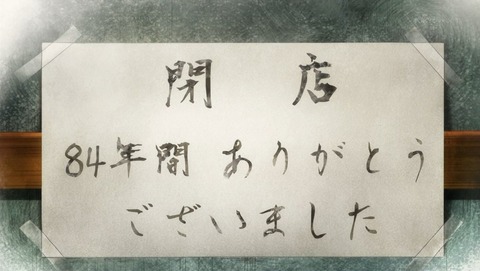 閉店
84年間 ありがとう
ございました